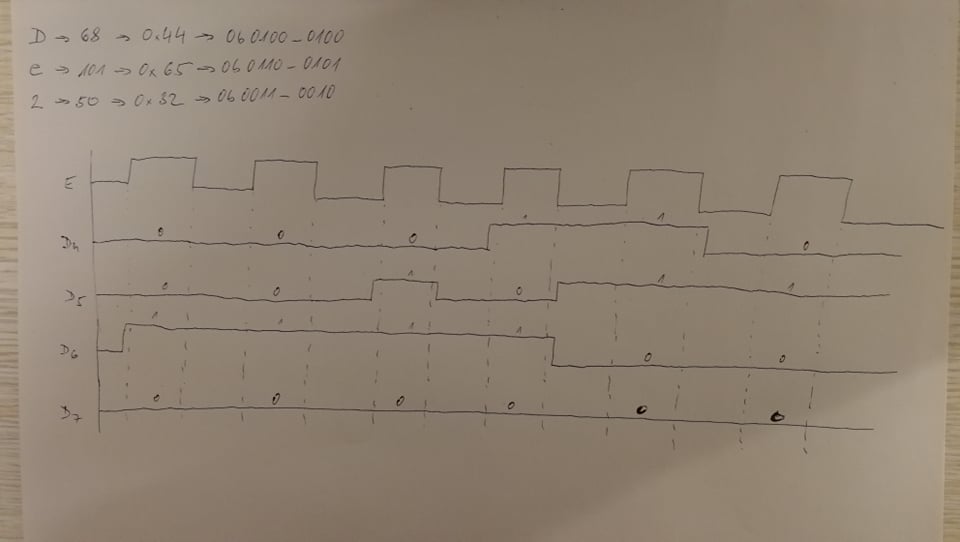 D → 68 → 0x44 → 0b0100_0100
e → 101 → 0x65 → 0b0110_0101
2 → 50 → 0x32 → 0b0011_0010
E
D4 0 0 0 1 1 0
D5 0 0 1 0 1 1
D6 1 1 1 1 0 0
D7 0 0 0 0 0 0